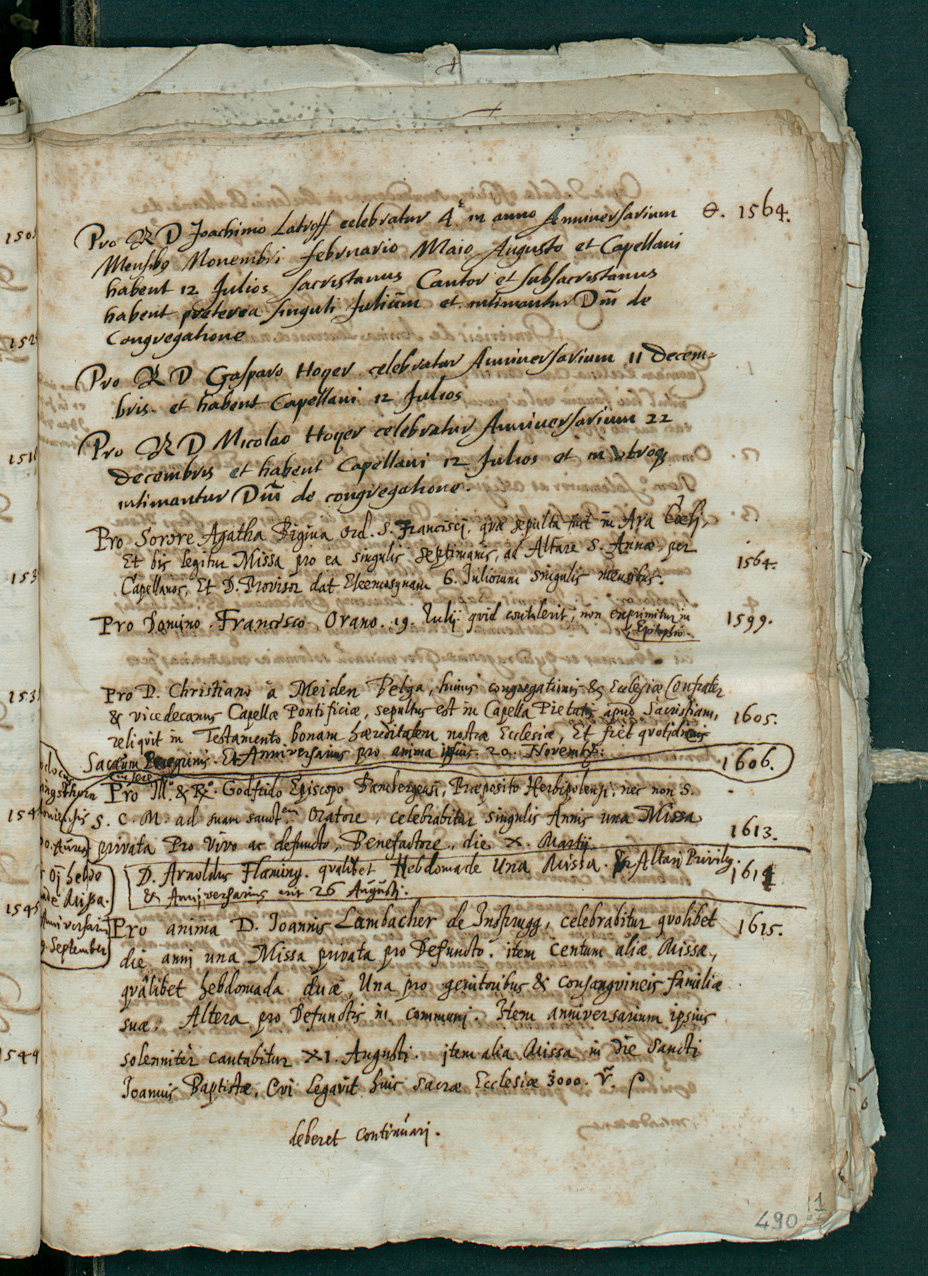 Pro R D Joachimo Latroff celebratur 4.r in anno Anniversarium
Mensibus Novembri Februario Maio Augusto et Capellani
habent 12 Julios Sacristanus Cantor et subsacristanus
habent preterea singuli Julium et intimantur Dni de
Congregatione
1564.
Pro R D Gasparo Hoyer celebratur Anniversarium 11 Decem-
bris. et habent Capellani 12 Julios
Pro R D Nicolao Hoyer celebratur Anniversarium 22
decembris et habent Capellani 12 Julios et in utroq
intimantur Dni de congregatione.
Pro Sorore Agatha Bigina ord. S. Francisci, quæ sepulta fuit in Ara Cœli,
Et bis legitur Missa pro ea singulis septimanis, ad Altare S. Annæ, per
Capellanos, Et D. Provisor dat Eleemosynam 6. Juliorum singulis mensibus.
1564.
Pro Domino Francisco Orano. 19. Iulij quid contulerit, non exprimitur in
Epitaphio.
1599.
Pro D. Christiano à Meiden Belga, huius congregationis & Ecclesiæ Confrater
& vicedecanus Capellæ Pontificiæ, sepultus est in Capella Pietatis apud Sacristiam,
reliquit in Testamento bonam hæreditatem nostræ Ecclesiæ, Et fiet quotidianis
Sacrum Et Anniversarius pro anima ipsius 20. Novemb:
1605.
1606.
Pro Ill.o & R.o Godfrido Episcopo Bambergensi, Præposito Herbipolensi, nec non S.
S. C. M. ad suam sanct.em Oratore, celebrabitur singulis Annis una Missa
privata Pro Vivo ac defuncto, Benefactore, die X. Martij
1613.
D. Arnoldus Flaming. qualibet Hebdomade Una Missa. Altari Privil.
& Anniversarius erit 26 Augusti.
1614
Pro anima D. Ioannis Lambacher de Insprugg, celebrabitur quolibet
die anni una Missa privata pro Defuncto. item centum aliæ Missæ,
quâlibet hebdomada duæ, Una pro genitoribus & consanguineis familiæ
suæ, Altera pro Defunctis in communi. Item anniversarium ipsius
solenniter cantabitur XI. Augusti. item alia Missa in die Sancti
Ioannis Baptistæ. Qui legavit huic sacræ Ecclesiæ 3000.
1615.
deberet continuari.
hebdo
Missa.
Anniversari
September
490